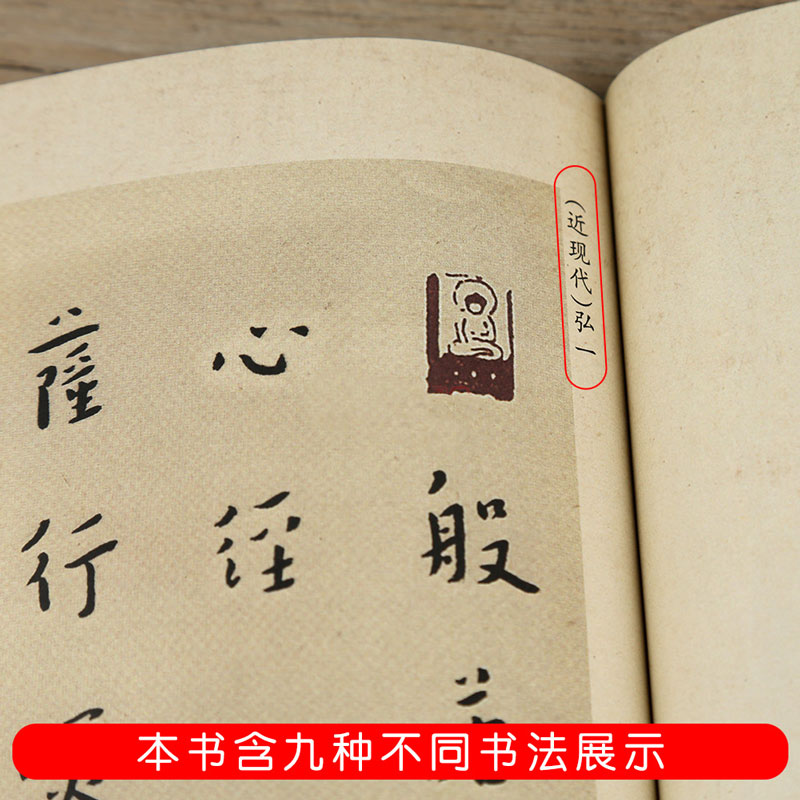 （近现代）弘一
般若
心经
薩行深
本书含九种不同书法展示